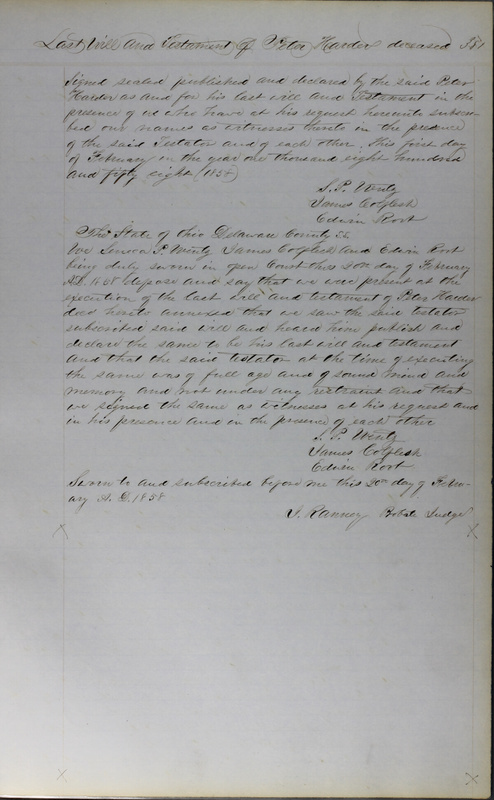 Last Will and Testament of Peter Harder deceased 381
Signed sealed published and declared by the said Peter
Harder as and for his last will and Testament in the
presence of us who have at his request hereunto subscri-
bed our names as witnesses thereto in the presence
of the said Testator and of each other. this first day
of February in the year one thousand eight hundred
and fifty eight (1858)
S. P. Wentz
James Coflesh
Edwin Root
The State of Ohio Delaware County ss
We P. Wentz James Coflesh and Edwin Root
being duly sworn in open Court this 20th day of February
A.D. 1858 depose and say that we were present at the
execution of the last will and testament of Peter Harder
decd hereto annexed that we saw the said testator
subscribed said will and heard him publish and
declare the same to be his last will and testament
and that the said testator at the time of executing
the same was of full age and of sound mind and
memory and not under any restraint and that
we signed the same as witnesses at his request and
in his presence and in the presence of each other
S. P. Wentz
James Coflesh
Edwin Root
Sworn to and subscribed before me this 20th day of Febru-
ary A. D. 1858
Ranney Probate Judge